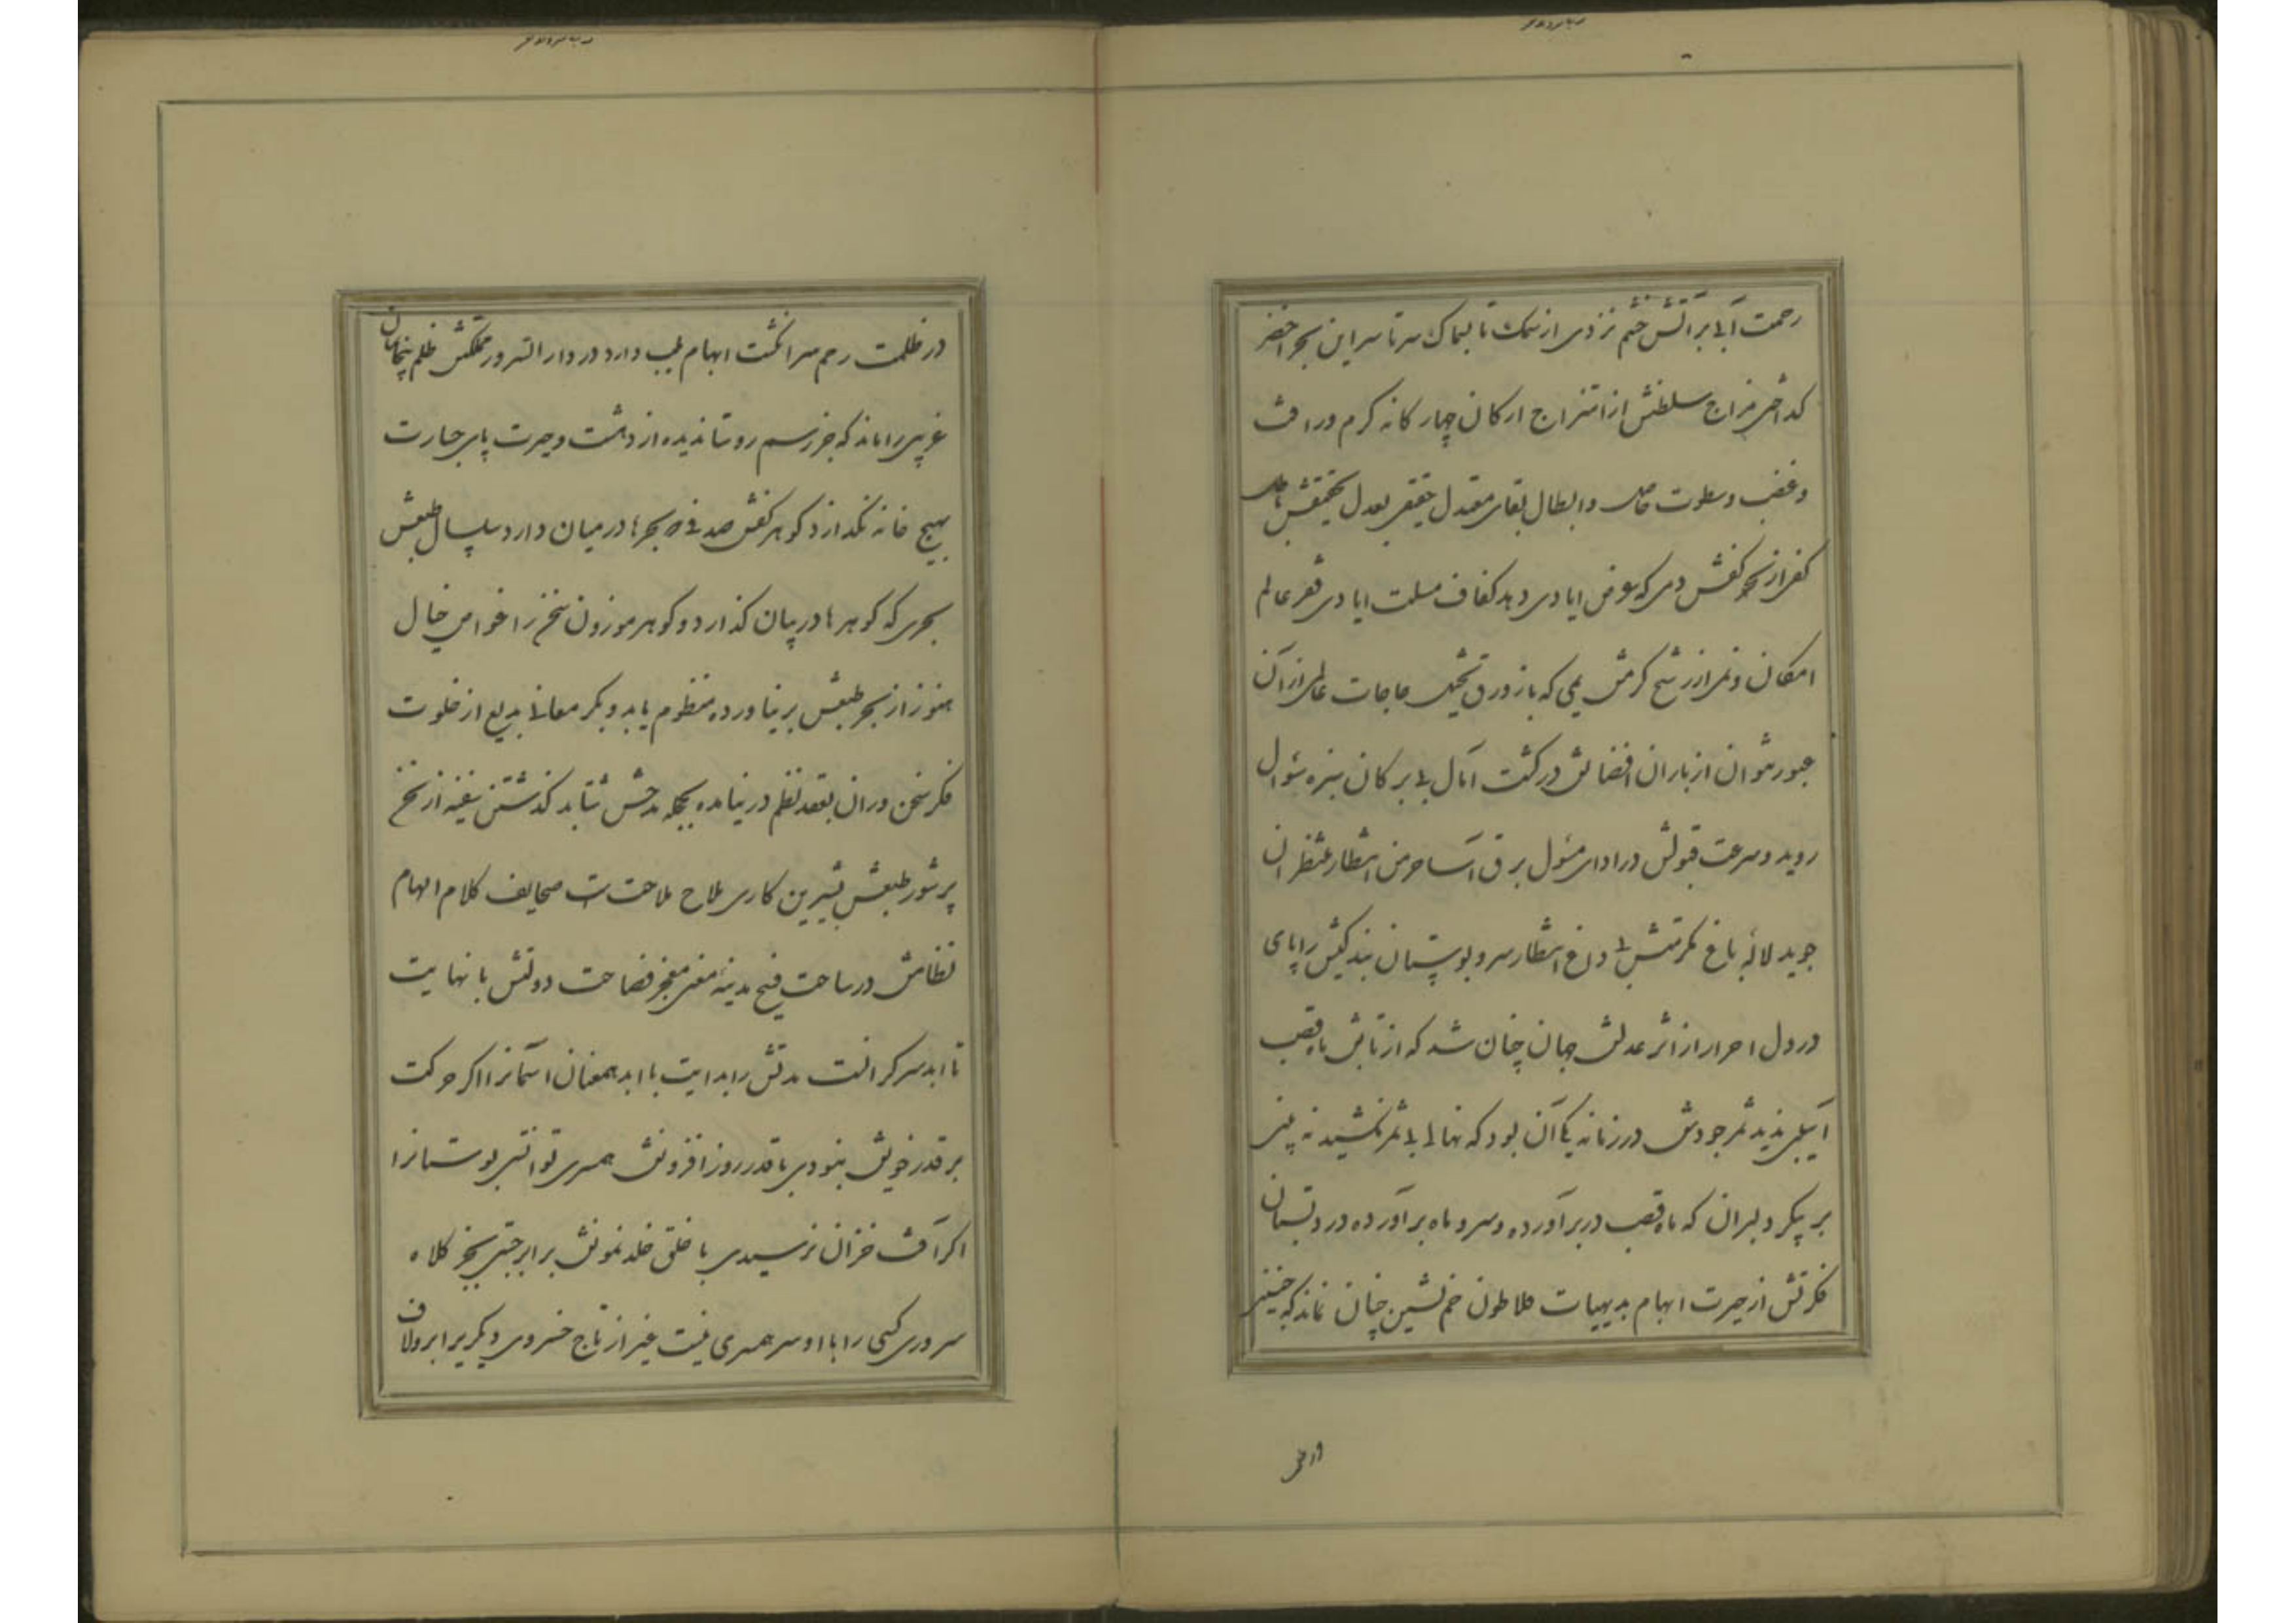 رحمت آبی بر آتش خشم نزدی از سمک تا بسماک سرتاسر این بحر اخضر
کداختی مزاج سلطنتش از امتزاج ارکان چهار کانه کرم و رافت
و غضب و سطوت حاصل و ابطال بقای معتدل حقیقی بعدل تحقیقش باطل
کفی از بحر کفش دمی که بعرض ایادی دهد کفاف مسئلت ایادی فقر عالم
امکان و نمی از رشح کرمش یمی که با زورق تخیل حاجات عالمی از آن
عبور نتوان از باران افضالش در کشت آمال بی برکان سبزه سئوال
روید و سرعت قبولش در ادای مسئول برق آسا خرمن انتظار منتظران
جوید لاله باغ مکرمتش بی داغ انتظار سرو بوستان بندکیش را پای
در دل احرار از اثر عدلش جهان چنان شد که از تابش ماه قصب
آسیبی ندید ثمر جودش در زمانه یکی آن بود که نهالی بی ثمر نکشید نه بینی
بر پیکر دلبران که ماه قصب در بر آورده و سرو ماه بر آورده در دبستان
فکرتش از حیرت ابهام بدیهیات فلاطون خم نشین چنان نماند که جنین
در ظلمت
در ظلمت رحم سر انکشت ابهام بلب دارد در دار السرور مملکتش ظلم پنجهان
غریبی را ماند که جز رسم روستا ندیده از دهشت و حیرت پای جسارت
بهیچ خانه نکذارد کوهر کفش صدفی که بحرها در میان دارد سلسال طبعش
بحری که کوهرها در میان کذارد و کوهر موزون سخن را غواص خیال
هنوز از بحر طبعش بر نیاورده منظوم یابد و بکر معانی بدیع از خلوت
فکر سخن وران بعقد نظم در نیامده بحجله مدحش شتابد کذشتن سفینه از سخن
پرشور طبعش بشیرین کاری ملاح ملاحت است صحایف کلام الهام
نظامش در ساحت فسح مدینه معنی معجز فصاحت دولتش با نهایت
تا ابد سر کرانست مدتش را بدایت با ابد همعنان آسمانرا اکر حرکت
بر قدر خویش بنودی با قدر روز افزونش همسری توانستی بوستانرا
اکر آفت خزان نرسیدی با خلق خلد نمونش برابر جستی بجز کلاه
سروری کسی را با او سر همسری نیست غیر از تاج خسروی دیکریرا بر او لاف